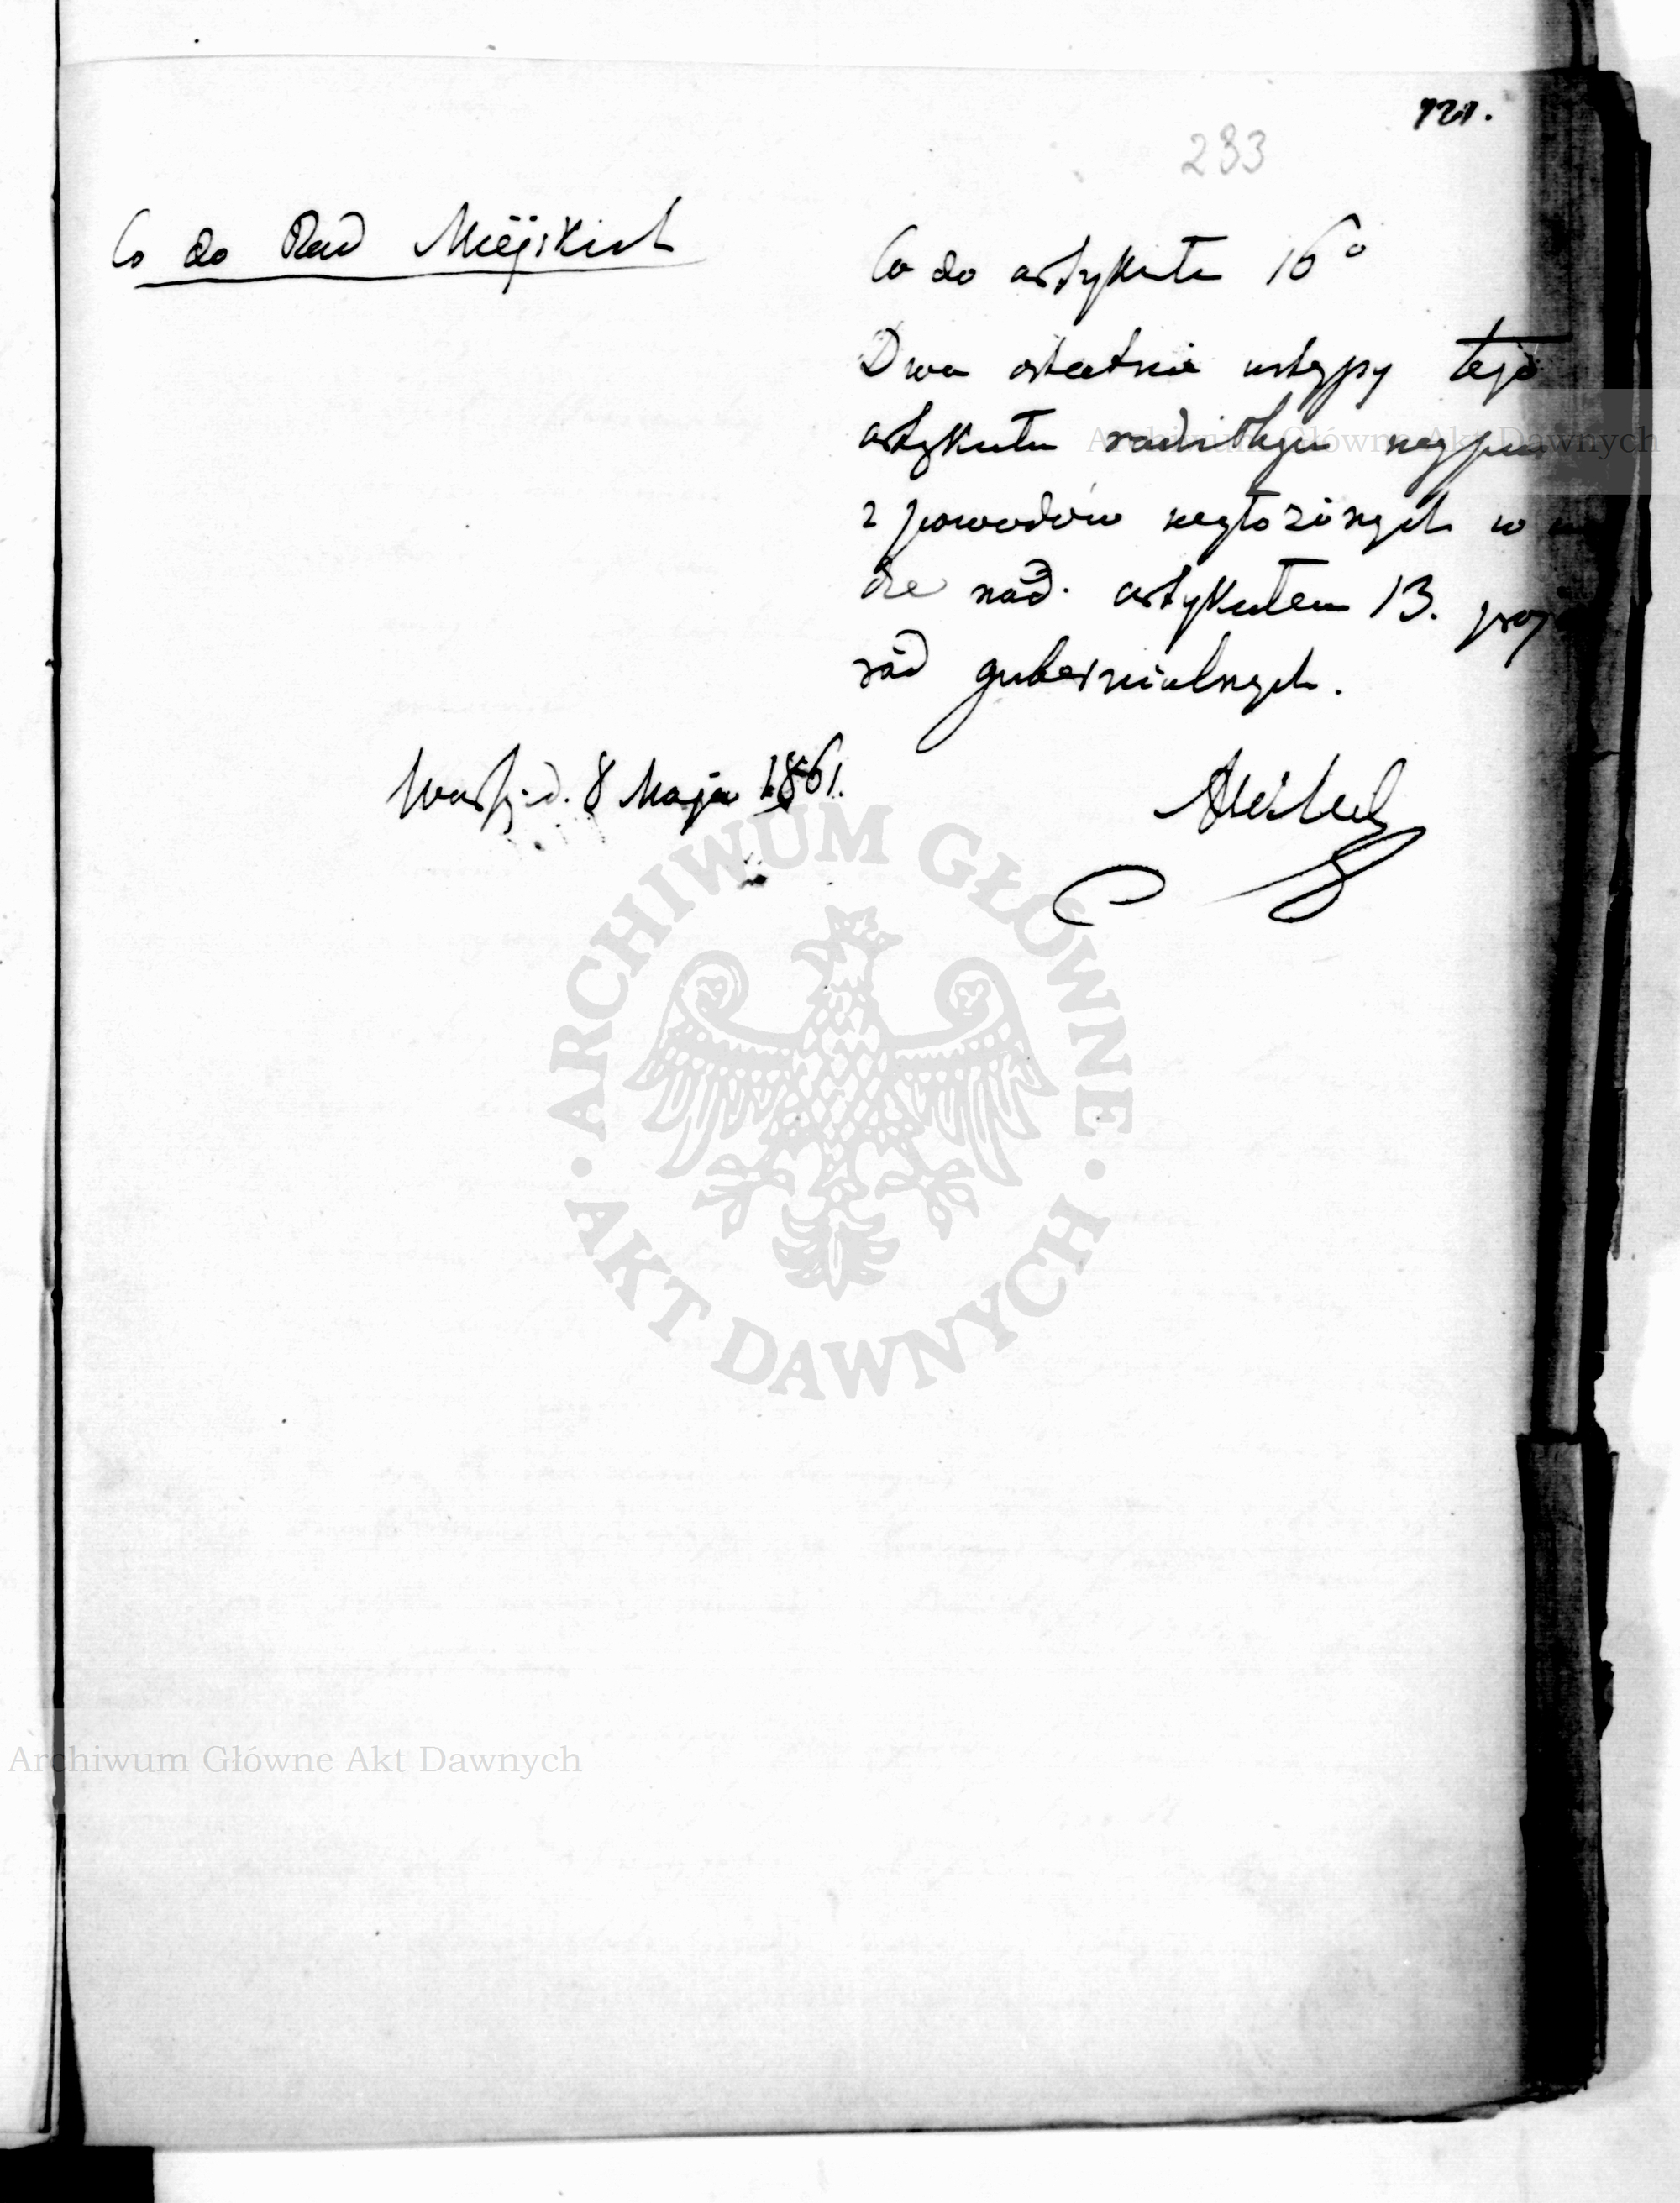 121.
233
Co do Rad Miejskich
Co do artykułu 16°
Dwa ostatnie ustępy tego
artykułu radziłbym
z powodów wyłożonych w
nad artykułem 13.
rad gubernialnych.
Warsz. d. 8 Maja 1861.
ARCHIWUM GŁÓWNE AKT DAWNYCH
Archiwum Główne Akt Dawnych
Archiwum Główne Akt Dawnych